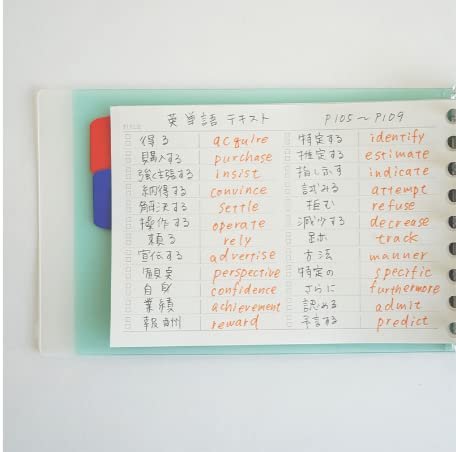 英単語 テキスト P105～P109
得る acquire
購入する purchase
強く主張する insist
納得する convince
解決する settle
操作する operate
頼る rely
宣伝する advertise
観点 perspective
自身 confidence
業績 achievement
報酬 reward
特定する identify
推定する estimate
指し示す indicate
試みる attempt
拒む refuse
減少する decrease
跡 track
方法 manner
特定の specific
さらに furthermore
認める admit
予言する predict